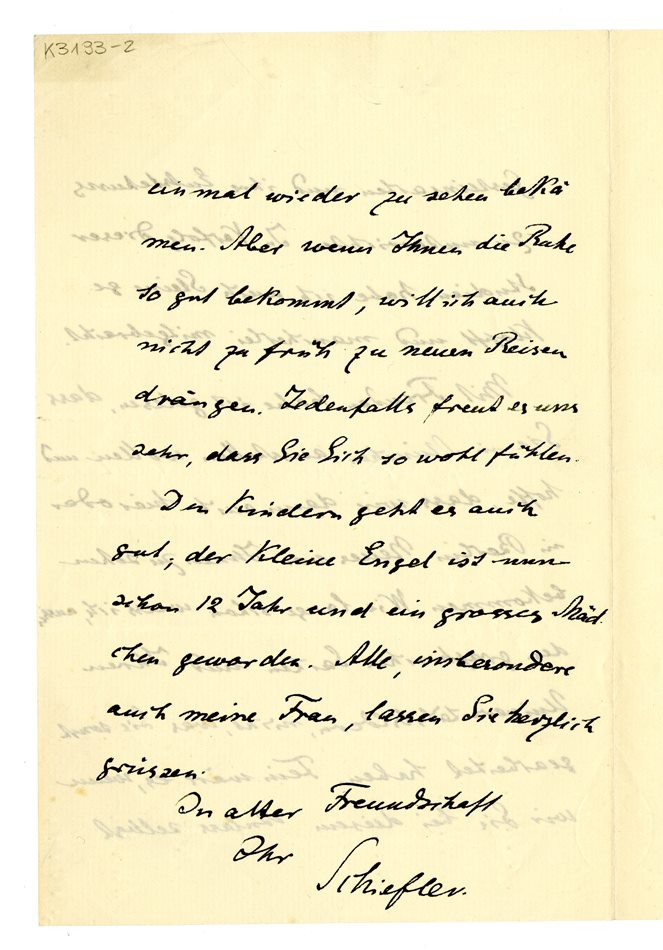 K3193-2
einmal wieder zu sehen bekä
men. Aber wenn Ihnen die Ruhe
so gut bekommt, will ich auch
nicht zu früh zu neuen Reisen
drängen. Jedenfalls freut es uns
sehr, dass Sie Sich so wohl fühlen.
Den Kindern geht es auch
gut; der Kleine Engel ist nun
schon 12 Jahr und ein grosses Mäd
chen geworden. Alle, insbesondere
auch meine Frau, lassen Sie herzlich
grüssen.
In alter Freundschaft
Ihr
Schiefler.